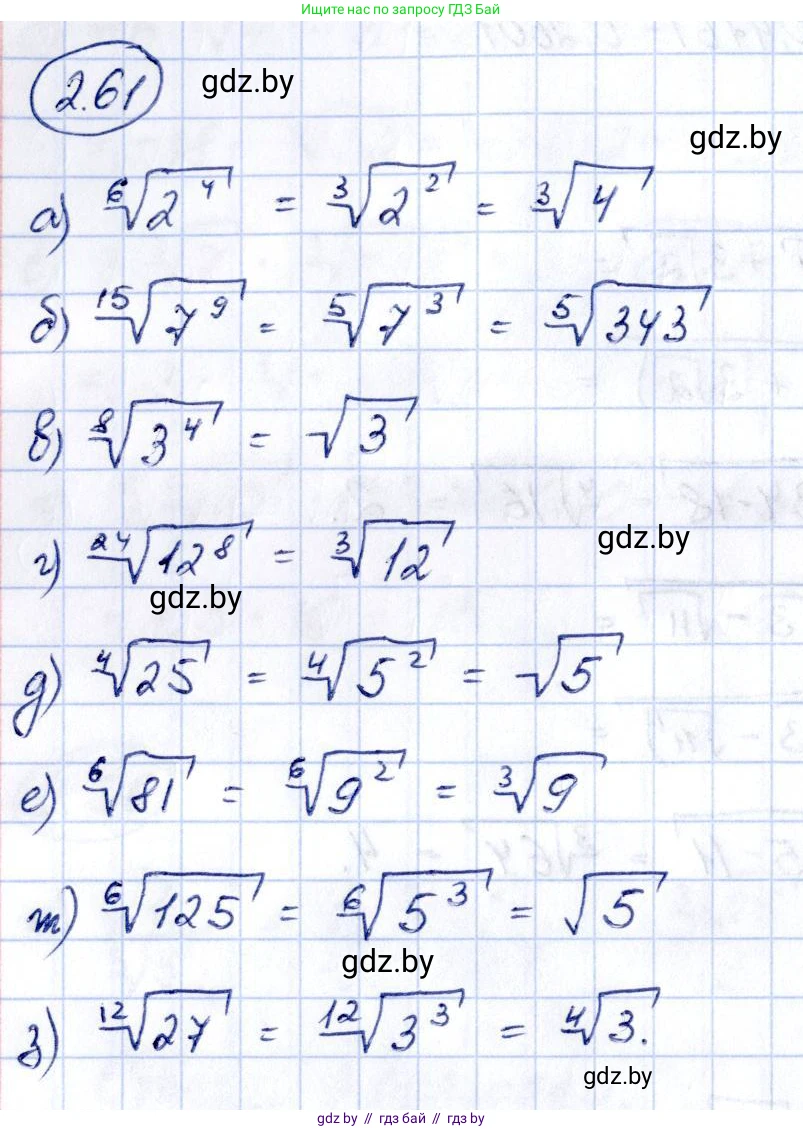 Ищите нас по запросу ГДЗ Бай
2.61 gdz.by
gdz.by
а) ⁶√2⁴ = ³√2² = ³√4
б) ¹⁵√7⁹ = ⁵√7³ = ⁵√343
в) ⁸√3⁴ = √3
г) ²⁴√12⁸ = ³√12 gdz.by
gdz.by
д) ⁴√25 = ⁴√5² = √5
е) ⁶√81 = ⁶√9² = ³√9
ж) ⁶√125 = ⁶√5³ = √5
gdz.by
з) ¹²√27 = ¹²√3³ = ⁴√3.
gdz.by
gdz.by // гдз бай // gdz.by